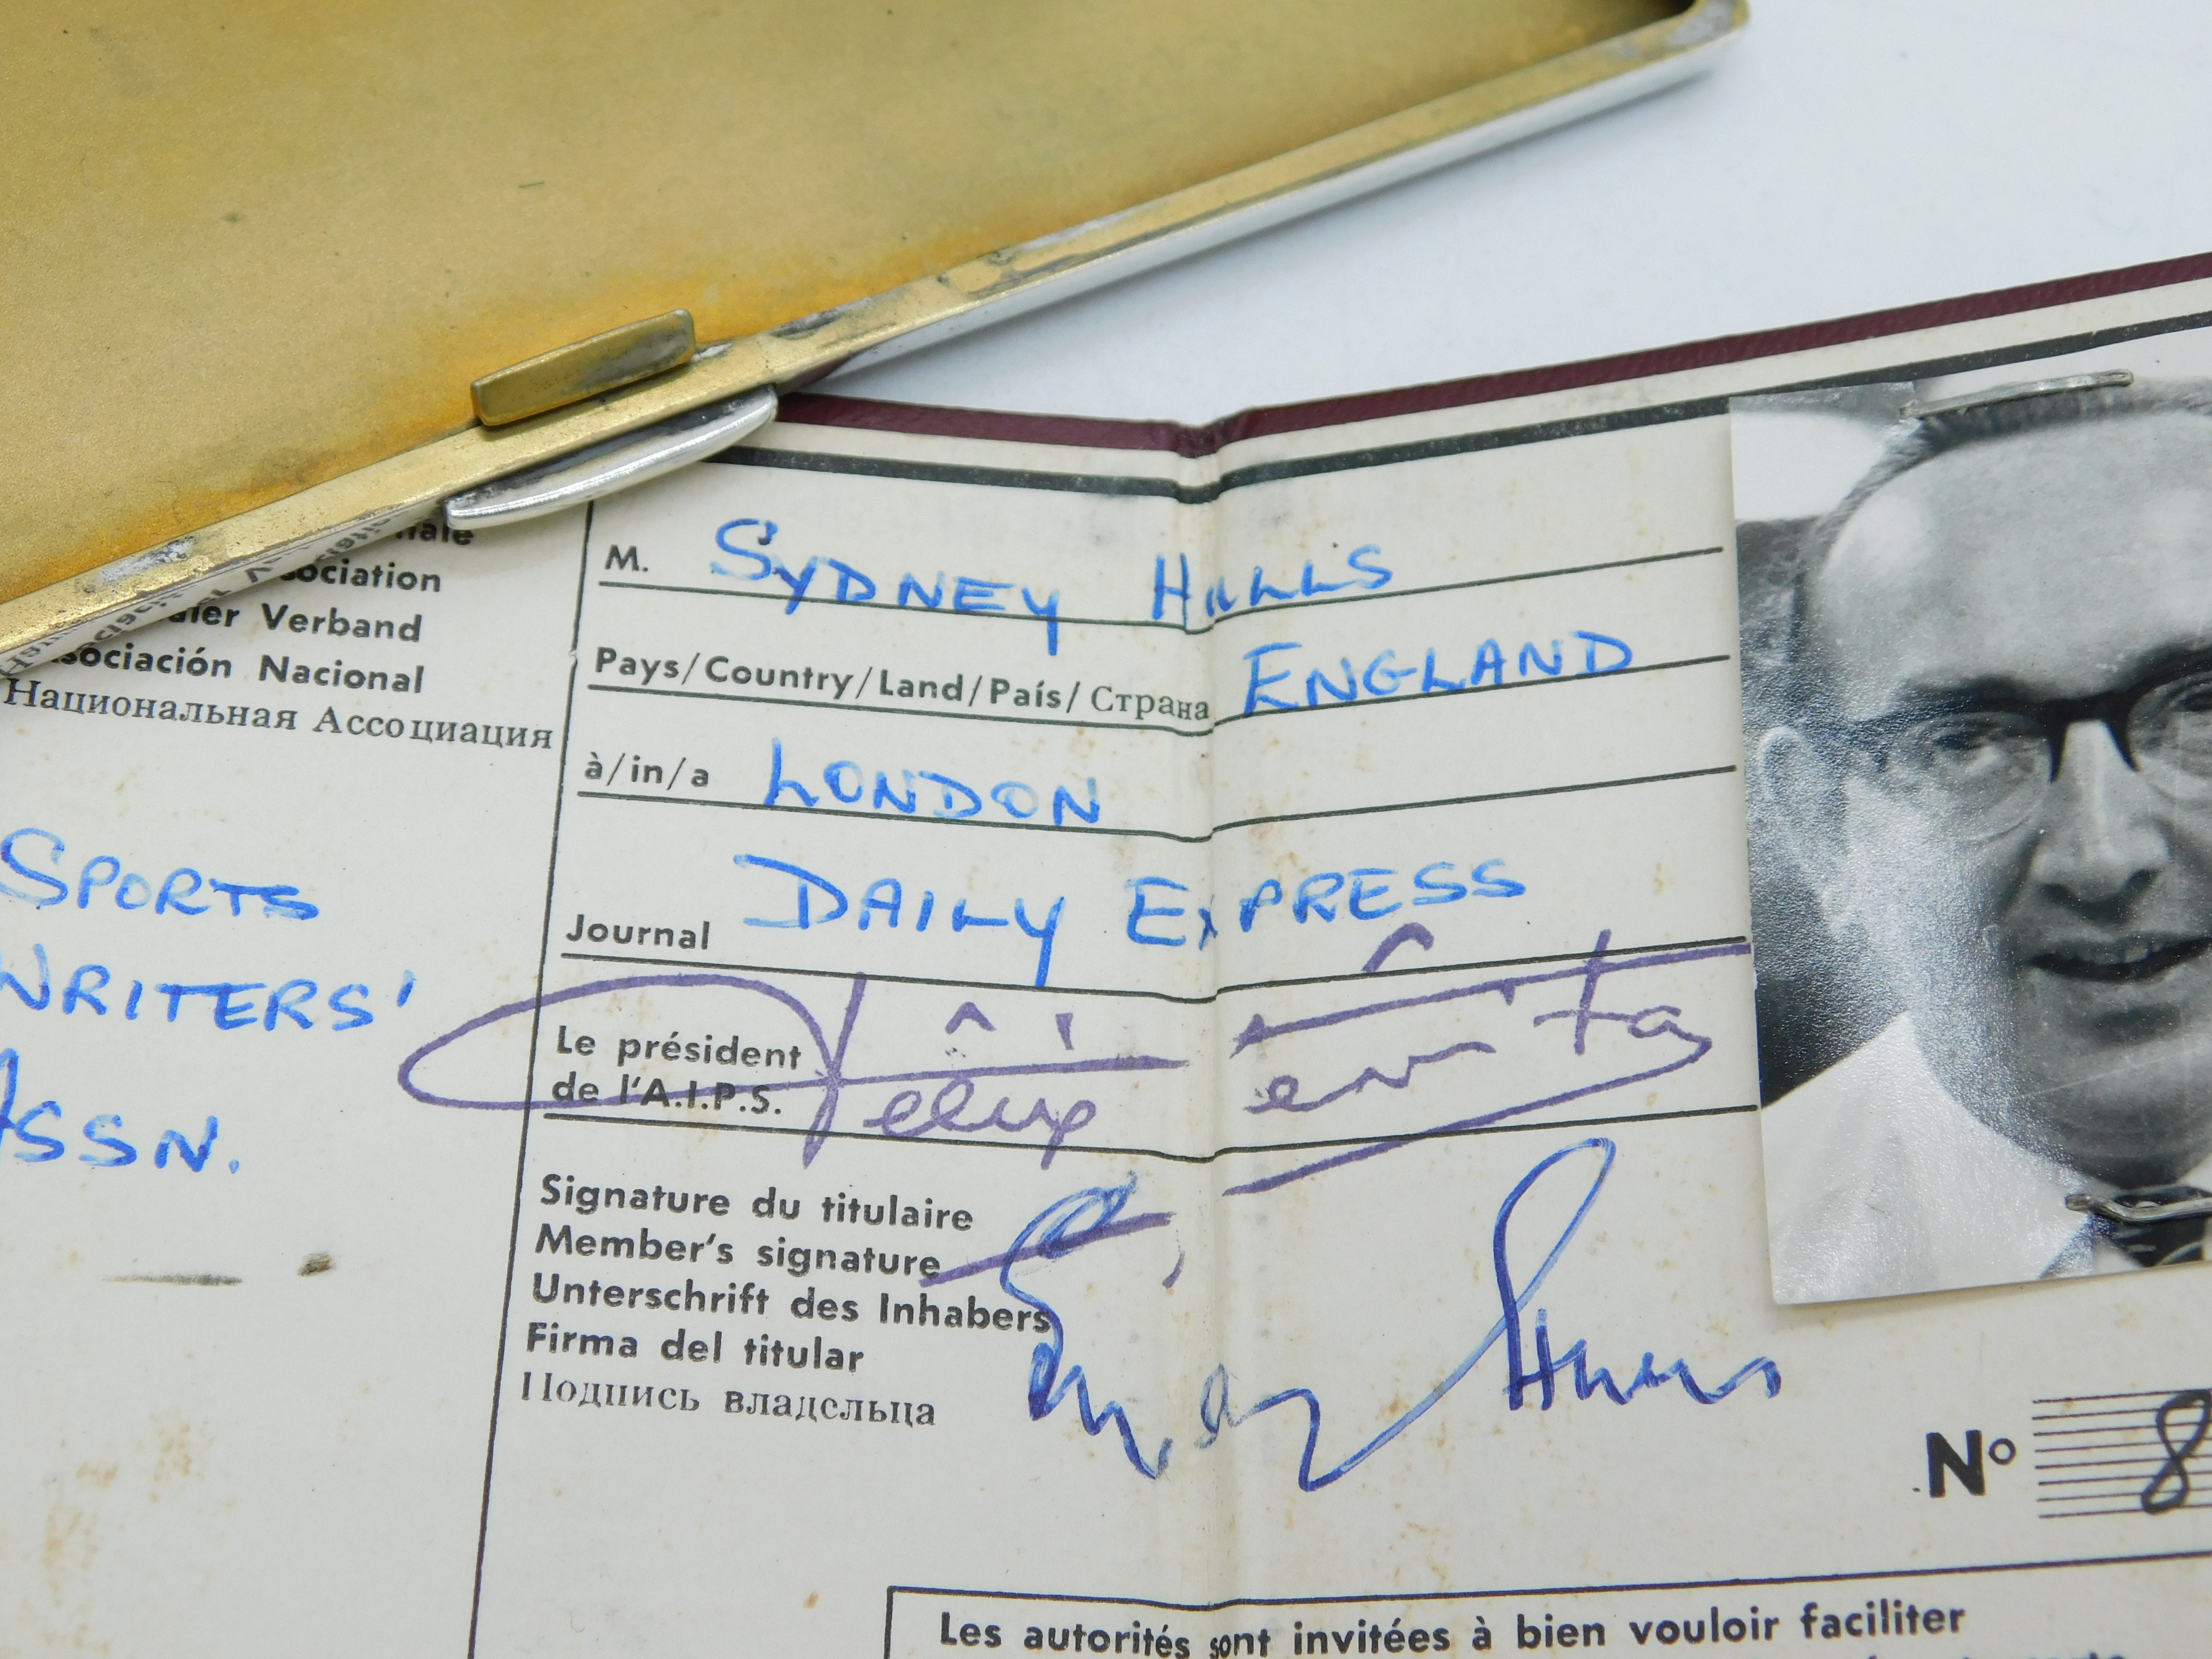 ociation
Verband
sociación Nacional
Национальная Ассоциация
SPORTS
WRITERS'
ASSN.
M. SYDNEY HULLS
Pays/Country/Land/País/Страна ENGLAND
à/in/a LONDON
Journal DAILY EXPRESS
Le président
de l'A.I.P.S.
Signature du titulaire
Member's signature
Unterschrift des Inhabers
Firma del titular
Подпись владельца
Nº 8
Les autorités sont invitées à bien vouloir faciliter